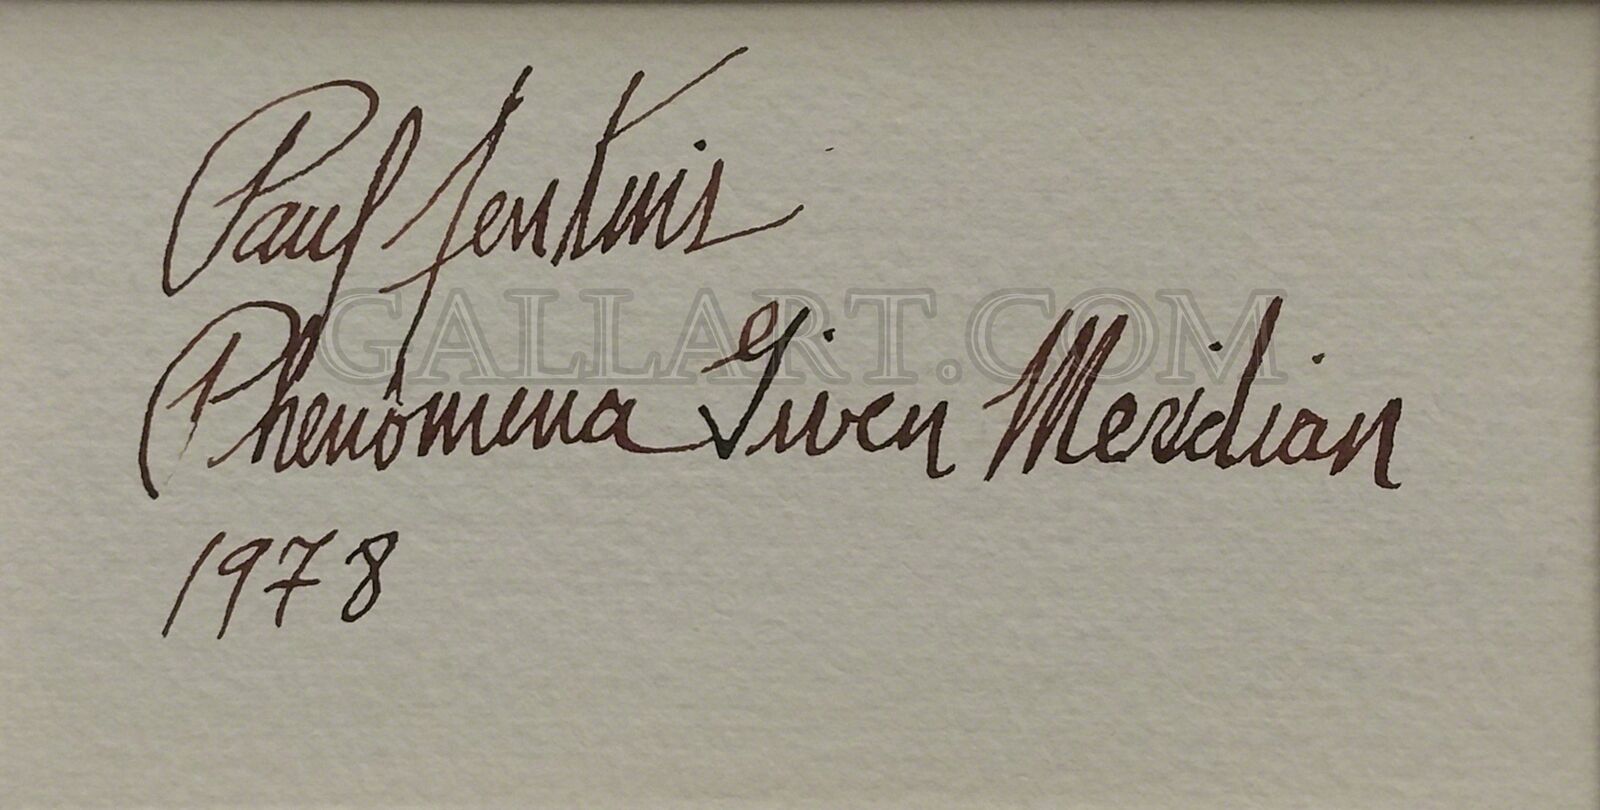 Paul Jenkins
GALLART.COM
Phenomena Given Meridian
1978